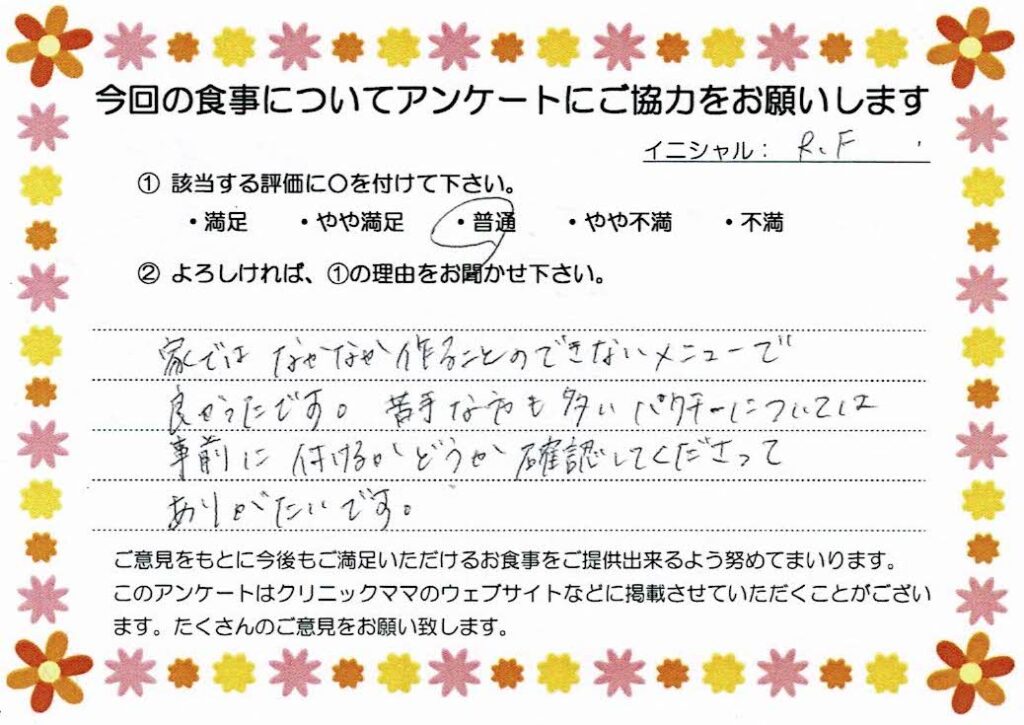 今回の食事についてアンケートにご協力をお願いします
イニシャル： R.F
① 該当する評価に〇を付けて下さい。
・満足 ・やや満足 ・普通 ・やや不満 ・不満
② よろしければ、①の理由をお聞かせ下さい。
家では なかなか作ることのできないメニューで
良かったです。苦手な方も多い パクチーについては
事前に 付けるかどうか 確認してくださって
ありがたいです。
ご意見をもとに今後もご満足いただけるお食事をご提供出来るよう努めてまいります。
このアンケートはクリニックママのウェブサイトなどに掲載させていただくことがござい
ます。たくさんのご意見をお願い致します。